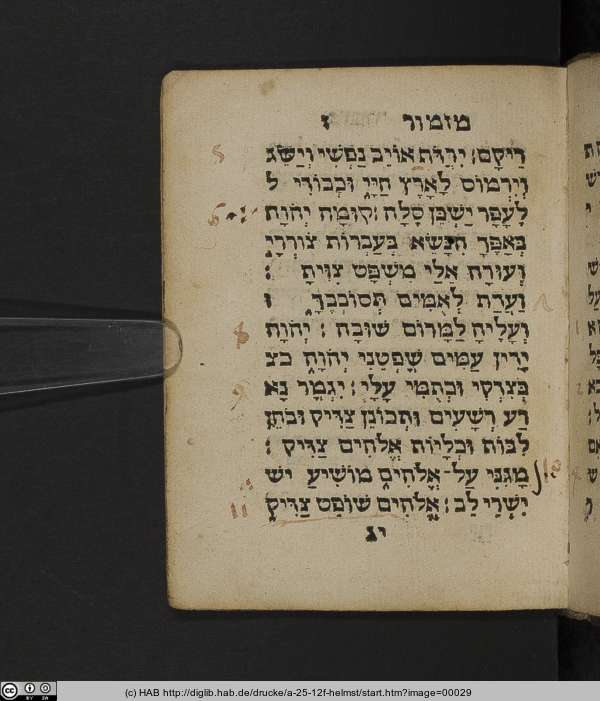 מזמור ז
רֵיקָם׃ יִרַדֹּף אוֹיֵב נַפְשִׁי וְיַשֵּׂג
וְיִרְמוֹס לָאָרֶץ חַיָּי וּכְבוֹדִי ל
לֶעָפָר יַשְׁכֵּן סֶלָה׃ קוּמָה יְהוָה
בְּאַפֶּךָ הִנָּשֵׂא בְּעַבְרוֹת צוֹרְרָי
וְעוּרָה אֵלַי מִשְׁפָּט צִוִּיתָ ׃
וַעֲדַת לְאֻמִּים תְּסוֹבְבֶךָּ ו
וְעָלֶיהָ לַמָּרוֹם שׁוּבָה ׃ יְהוָה
יָדִין עַמִּים שָׁפְטֵנִי יְהוָה כצ
כְּצִדְקִי וּכְתֻמִּי עָלָי׃ יִגְמָר נָא
רַע רְשָׁעִים וּתְכוֹנֵן צַדִּיק וּבֹחֵן
לִבּוֹת וּכְלָיוֹת אֱלֹהִים צַדִּיק ׃
מָגִנִּי עַל־אֱלֹהִים מוֹשִׁיעַ יש
יִשְׁרֵי לֵב׃ אֱלֹהִים שׁוֹפֵט צַדִּיק
יג
8
8
9
11
(c) HAB http://diglib.hab.de/drucke/a-25-12f-helmst/start.htm?image=00029
CC BY SA